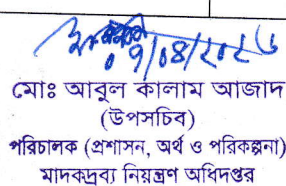 ০৭/০৪/২০২৬
মোঃ আবুল কালাম আজাদ
(উপসচিব)
পরিচালক (প্রশাসন, অর্থ ও পরিকল্পনা)
মাদকদ্রব্য নিয়ন্ত্রণ অধিদপ্তর